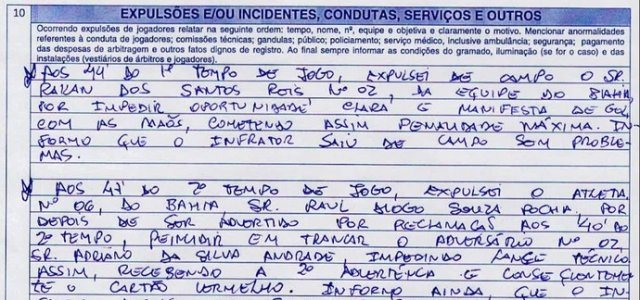 10
EXPULSÕES E/OU INCIDENTES, CONDUTAS, SERVIÇOS E OUTROS
Ocorrendo expulsões de jogadores relatar na seguinte ordem: tempo, nome, nº, equipe e objetiva e claramente o motivo. Mencionar anormalidades
referentes à conduta de jogadores; comissões técnicas; gandulas; público; policiamento; serviço médico, inclusive ambulância; segurança; pagamento
das despesas de arbitragem e outros fatos dignos de registro. Ao final sempre informar as condições do gramado, iluminação (se for o caso) e das
instalações (vestiários de árbitros e jogadores).
AOS 44' DO 1º TEMPO DE JOGO, EXPULSEI DE CAMPO O SR.
DOS SANTOS REIS Nº 02, DA EQUIPE DO BAHIA
POR IMPEDIR OPORTUNIDADE CLARA E MANIFESTA DE GOL
COM AS MÃOS, COMETENDO ASSIM PENALIDADE MÁXIMA. IN-
FORMO QUE O INFRATOR SAIU DE CAMPO SEM PROBLE-
MAS.
AOS 47' DO 2º TEMPO DE JOGO, EXPULSEI O ATLETA
Nº 06, DO BAHIA SR. RAUL DIOGO SOUZA ROCHA, POR
DEPOIS DE SER ADVERTIDO POR RECLAMAÇÃO AOS 40' DO
2º TEMPO, REINCIDIR EM TRANCAR O ADVERSÁRIO Nº 02,
SR. ADRIANO DA SILVA ANDRADE, IMPEDINDO LANCE TÉCNICO,
ASSIM, RECEBENDO A 2ª ADVERTÊNCIA E CONSEQUENTEMEN
TE O CARTÃO VERMELHO. INFORMO AINDA, QUE O IN-